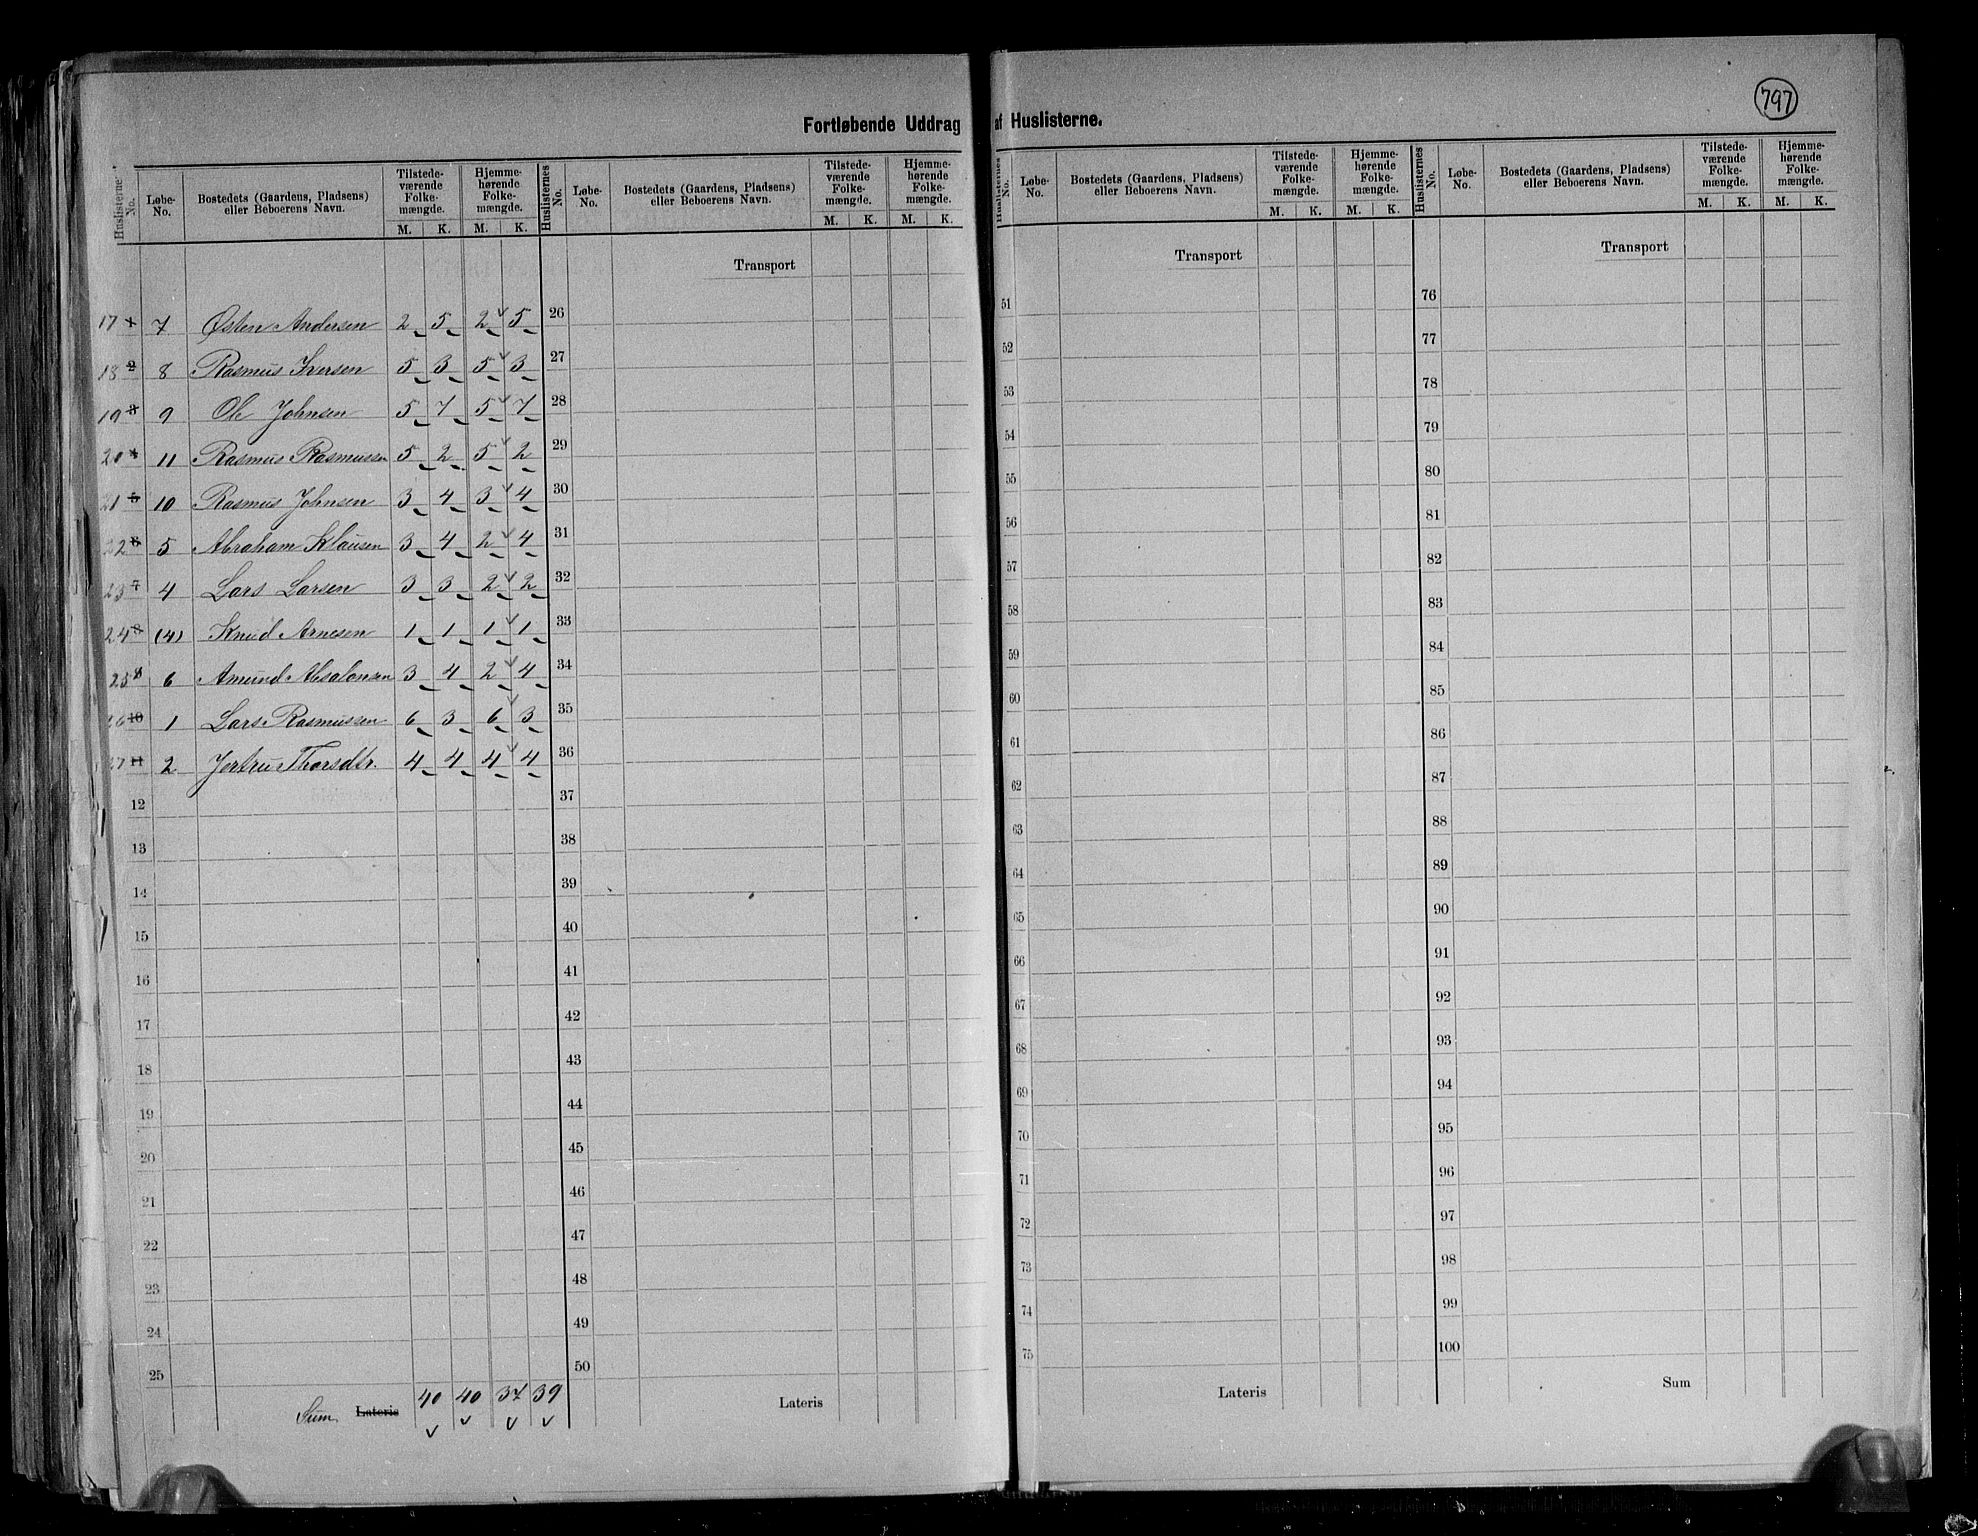 797
Fortløbende Uddrag af Huslisterne.
Huslisternes No. | Løbe-No. | Bostedets (Gaardens, Pladsens) eller Beboerens Navn. | Tilstedeværende Folkemængde. M. K. | Hjemmehørende Folkemængde. M. K.
17 1 7 Østen Andersen 2 5 2 5
18 2 8 Rasmus Iversen 5 3 5 3
19 3 9 Ole Johnsen 5 7 5 7
20 4 11 Rasmus Rasmussen 5 2 5 2
21 5 10 Rasmus Johnsen 3 4 3 4
22 6 5 Abraham Klausen 3 4 2 4
23 7 4 Lars Larsen 3 3 2 2
24 8 (4) Knud Arnesen 1 1 1 1
25 9 6 Amund Absalonsen 3 4 2 4
26 10 1 Lars Rasmussen 6 3 6 3
27 11 2 Jertru Thorsdtr. 4 4 4 4
12
13
14
15
16
17
18
19
20
21
22
23
24
25
Sum Lateris 40 40 37 39
Huslisternes No. | Løbe-No. | Bostedets (Gaardens, Pladsens) eller Beboerens Navn. | Tilstedeværende Folkemængde. M. K. | Hjemmehørende Folkemængde. M. K.
Transport
26
27
28
29
30
31
32
33
34
35
36
37
38
39
40
41
42
43
44
45
46
47
48
49
50
Lateris
Huslisternes No. | Løbe-No. | Bostedets (Gaardens, Pladsens) eller Beboerens Navn. | Tilstedeværende Folkemængde. M. K. | Hjemmehørende Folkemængde. M. K.
Transport
51
52
53
54
55
56
57
58
59
60
61
62
63
64
65
66
67
68
69
70
71
72
73
74
75
Lateris
Huslisternes No. | Løbe-No. | Bostedets (Gaardens, Pladsens) eller Beboerens Navn. | Tilstedeværende Folkemængde. M. K. | Hjemmehørende Folkemængde. M. K.
Transport
76
77
78
79
80
81
82
83
84
85
86
87
88
89
90
91
92
93
94
95
96
97
98
99
100
Sum